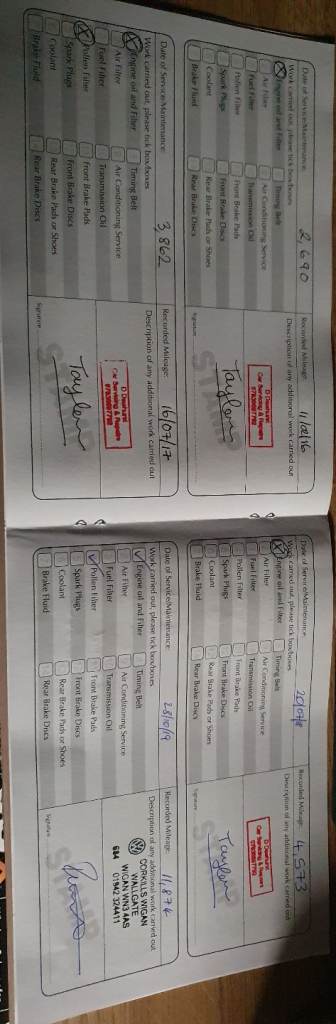 Date of Service/Maintenance: 2,690
Work carried out, please tick box/boxes
Engine oil and Filter
Timing Belt
Air Filter
Air Conditioning Service
Fuel Filter
Transmission Oil
Pollen Filter
Front Brake Pads
Spark Plugs
Front Brake Discs
Coolant
Rear Brake Pads or Shoes
Brake Fluid
Rear Brake Discs
Recorded Mileage:
Description of any additional work carried out
Car Servicing & Repairs
STAMP
Taylor
Signature
Date of Service/Maintenance: 3,862
Work carried out, please tick box/boxes
Engine oil and Filter
Timing Belt
Air Filter
Air Conditioning Service
Fuel Filter
Transmission Oil
Pollen Filter
Front Brake Pads
Spark Plugs
Front Brake Discs
Coolant
Rear Brake Pads or Shoes
Brake Fluid
Rear Brake Discs
Recorded Mileage: 16/07/17
Description of any additional work carried out
Car Servicing & Repairs
STAMP
Taylor
Signature
Date of Service/Maintenance:
Work carried out, please tick box/boxes
Engine oil and Filter
Timing Belt
Air Filter
Air Conditioning Service
Fuel Filter
Transmission Oil
Pollen Filter
Front Brake Pads
Spark Plugs
Front Brake Discs
Coolant
Rear Brake Pads or Shoes
Brake Fluid
Rear Brake Discs
Recorded Mileage: 4573
Description of any additional work carried out
Car Servicing & Repairs
STAMP
Taylor
Signature
Date of Service/Maintenance: 28/10/19
Work carried out, please tick box/boxes
Engine oil and Filter
Timing Belt
Air Filter
Air Conditioning Service
Fuel Filter
Transmission Oil
Pollen Filter
Front Brake Pads
Spark Plugs
Front Brake Discs
Coolant
Rear Brake Pads or Shoes
Brake Fluid
Rear Brake Discs
Recorded Mileage: 11,874
Description of any additional work carried out
DORKALS WIGAN
WALLGATE
WIGAN WN3 4AS
01942 324411
684
STAMP
Signature